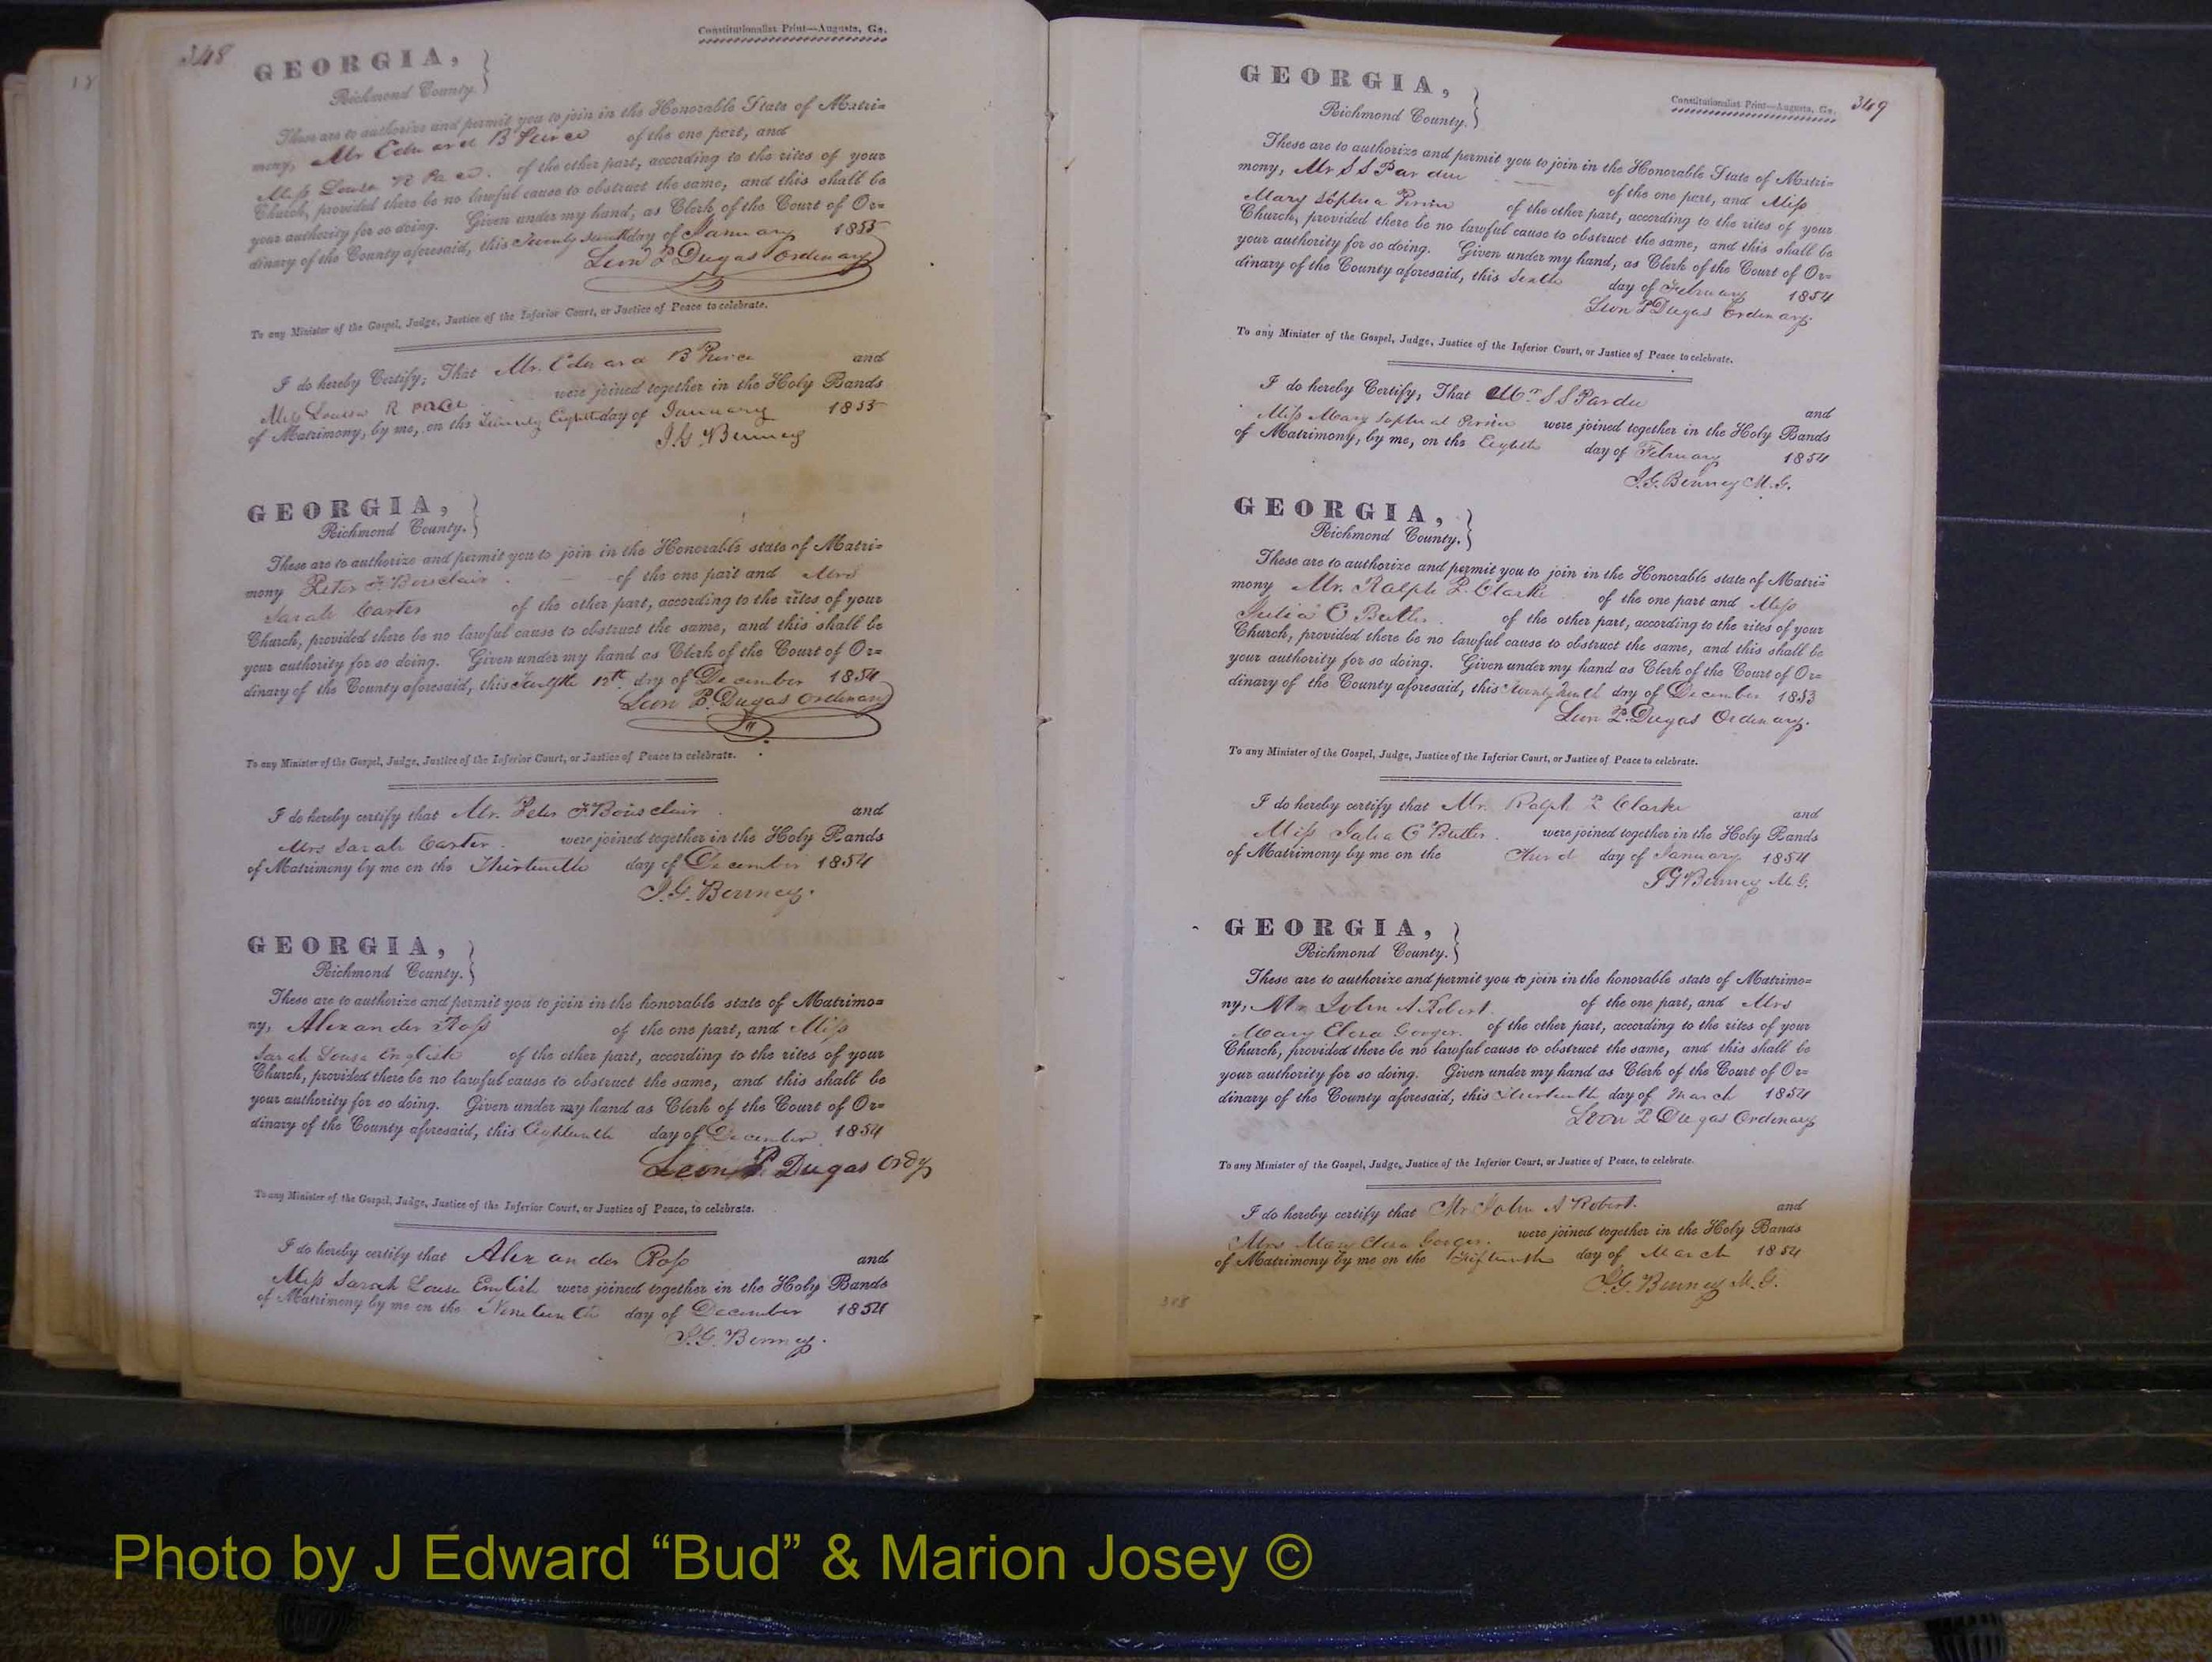 348
Constitutionalist Print—Augusta, Ga.
GEORGIA,
Richmond County.
These are to authorize and permit you to join in the Honorable State of Matri=
mony, Mr Edward B Pierce of the one part, and
Miss Louisa R Pace. of the other part, according to the rites of your
Church, provided there be no lawful cause to obstruct the same, and this shall be
your authority for so doing. Given under my hand, as Clerk of the Court of Or=
dinary of the County aforesaid, this Twenty day of January 1855
Leon P Dugas Ordinary
To any Minister of the Gospel, Judge, Justice of the Inferior Court, or Justice of Peace to celebrate.
I do hereby Certify, That Mr. Edward B Pierce and
Miss Louisa R Pace were joined together in the Holy Bands
of Matrimony, by me, on the Twenty Eighth day of January 1855
J. G Benney
GEORGIA,
Richmond County.
These are to authorize and permit you to join in the Honorable state of Matri=
mony Peter F Boisclair of the one part and Mrs
Sarah Carter of the other part, according to the rites of your
Church, provided there be no lawful cause to obstruct the same, and this shall be
your authority for so doing. Given under my hand as Clerk of the Court of Or=
dinary of the County aforesaid, this Twelfth 12th day of December 1854
Leon P. Dugas Ordinary
To any Minister of the Gospel, Judge, Justice of the Inferior Court, or Justice of Peace to celebrate.
I do hereby certify that Mr. Peter F Boisclair and
Mrs Sarah Carter. were joined together in the Holy Bands
of Matrimony by me on the Thirteenth day of December 1854
J. G. Benney.
GEORGIA,
Richmond County.
These are to authorize and permit you to join in the honorable state of Matrimo=
ny, Alexander Ross of the one part, and Miss
Sarah Louisa English of the other part, according to the rites of your
Church, provided there be no lawful cause to obstruct the same, and this shall be
your authority for so doing. Given under my hand as Clerk of the Court of Or=
dinary of the County aforesaid, this Eighteenth day of December 1854
Leon P. Dugas Ordy
To any Minister of the Gospel, Judge, Justice of the Inferior Court, or Justice of Peace, to celebrate.
I do hereby certify that Alexander Ross and
Miss Sarah Louisa English were joined together in the Holy Bands
of Matrimony by me on the Nineteenth day of December 1854
J. G. Benney.
349
Constitutionalist Print—Augusta, Ga.
GEORGIA,
Richmond County.
These are to authorize and permit you to join in the Honorable State of Matri=
mony, Mr S S Pardue of the one part, and Miss
Mary Sophia of the other part, according to the rites of your
Church, provided there be no lawful cause to obstruct the same, and this shall be
your authority for so doing. Given under my hand, as Clerk of the Court of Or=
dinary of the County aforesaid, this Sixth day of February 1854
Leon P Dugas Ordinary.
To any Minister of the Gospel, Judge, Justice of the Inferior Court, or Justice of Peace to celebrate.
I do hereby Certify, That Mr. S S Pardue and
Miss Mary were joined together in the Holy Bands
of Matrimony, by me, on the Eighth day of February 1854
J. G. Benney M. G.
GEORGIA,
Richmond County.
These are to authorize and permit you to join in the Honorable state of Matri=
mony Mr. Ralph P. Clarke of the one part and Miss
Julia C Butler. of the other part, according to the rites of your
Church, provided there be no lawful cause to obstruct the same, and this shall be
your authority for so doing. Given under my hand as Clerk of the Court of Or=
dinary of the County aforesaid, this day of December 1853
Leon P. Dugas Ordinary.
To any Minister of the Gospel, Judge, Justice of the Inferior Court, or Justice of Peace to celebrate.
I do hereby certify that Mr. Ralph P Clarke and
Miss Julia C Butler. were joined together in the Holy Bands
of Matrimony by me on the Third day of January 1854
J G Benney M. G.
GEORGIA,
Richmond County.
These are to authorize and permit you to join in the honorable state of Matrimo=
ny, Mr John A Robert. of the one part, and Mrs
Mary of the other part, according to the rites of your
Church, provided there be no lawful cause to obstruct the same, and this shall be
your authority for so doing. Given under my hand as Clerk of the Court of Or=
dinary of the County aforesaid, this Thirteenth day of March 1854
Leon P Dugas Ordinary
To any Minister of the Gospel, Judge, Justice of the Inferior Court, or Justice of Peace, to celebrate.
I do hereby certify that Mr John A Robert. and
Mrs Mary were joined together in the Holy Bands
of Matrimony by me on the Fifteenth day of March 1854
J. G. Benney M. G.
Photo by J Edward “Bud” & Marion Josey ©